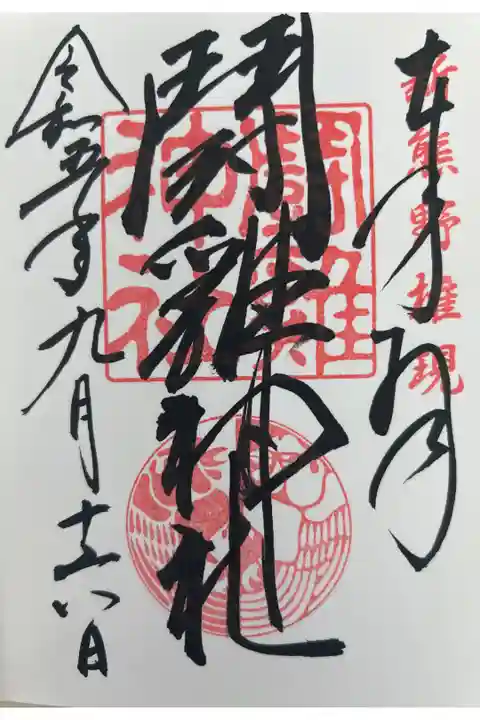 奉拝
新熊野權現
鬪雞神社
鬪雞神社
令和五年九月十六日